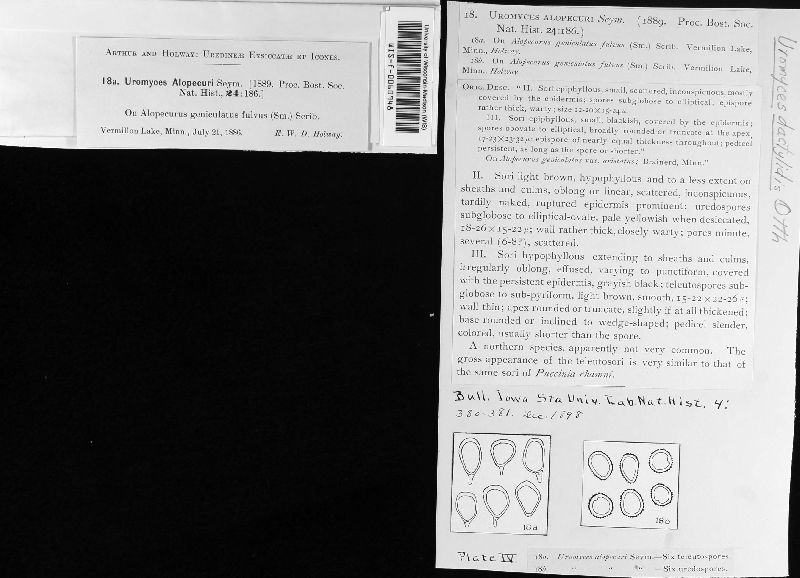 ARTHUR AND HOLWAY: UREDINEÆ EXSICCATÆ ET ICONES.
18a. Uromyces Alopecuri Seym. [1889. Proc. Bost. Soc.
Nat. Hist., 24:186.]
On Alopecurus geniculatus fulvus (Sm.) Scrib.
Vermilion Lake, Minn., July 21, 1886. E. W. D. Holway.
University of Wisconsin-Madison (WIS)
18. UROMYCES ALOPECURI Seym. (1889. Proc. Bost. Soc.
Nat. Hist. 24:186.)
18a. On Alopecurus geniculatus fulvus (Sm.) Scrib. Vermilion Lake,
Minn., Holway.
18b. On Alopecurus geniculatus fulvus (Sm.) Scrib. Vermilion Lake,
Minn. Holway
ORIG. DESC. "II. Sori epiphyllous, small, scattered, inconspicuous, mostly
covered by the epidermis; spores subglobose to elliptical, epispore
rather thick, warty; size
III. Sori epiphyllous, small, blackish, covered by the epidermis;
spores obovate to elliptical, broadly rounded or truncate at the apex,
17-23×23-32µ; epispore of nearly equal thickness throughout; pedicel
persistent, as long as the spore or shorter."
On Alopecurus geniculatus var. aristatus; Brainerd, Minn."
II. Sori light brown, hypophyllous and to a less extent on
sheaths and culms, oblong or linear, scattered, inconspicuous,
tardily naked, ruptured epidermis prominent; uredospores
subglobose to elliptical-ovate, pale yellowish when desiccated,
18-26×15-22µ; wall rather thick, closely warty; pores minute,
several (6-8?), scattered.
III. Sori hypophyllous extending to sheaths and culms,
irregularly oblong, effused, varying to punctiform, covered
with the persistent epidermis, grayish black; teleutospores sub-
globose to sub-pyriform, light brown, smooth, 15-22×22-26µ;
wall thin; apex rounded or truncate, slightly if at all thickened;
base rounded or inclined to wedge-shaped; pedicel slender,
colored, usually shorter than the spore.
A northern species, apparently not very common. The
gross appearance of the teleutosori is very similar to that of
the same sori of Puccinia rhamni.
Uromyces dactylidis Otth
Bull. Iowa Sta Univ. Lab. Nat. Hist. 4:
380-381. Dec. 1898
18a
18b
Plate IV
18a. Uromyces alopecuri Seym.—Six teleutospores.
18b. " " " —Six uredospores.